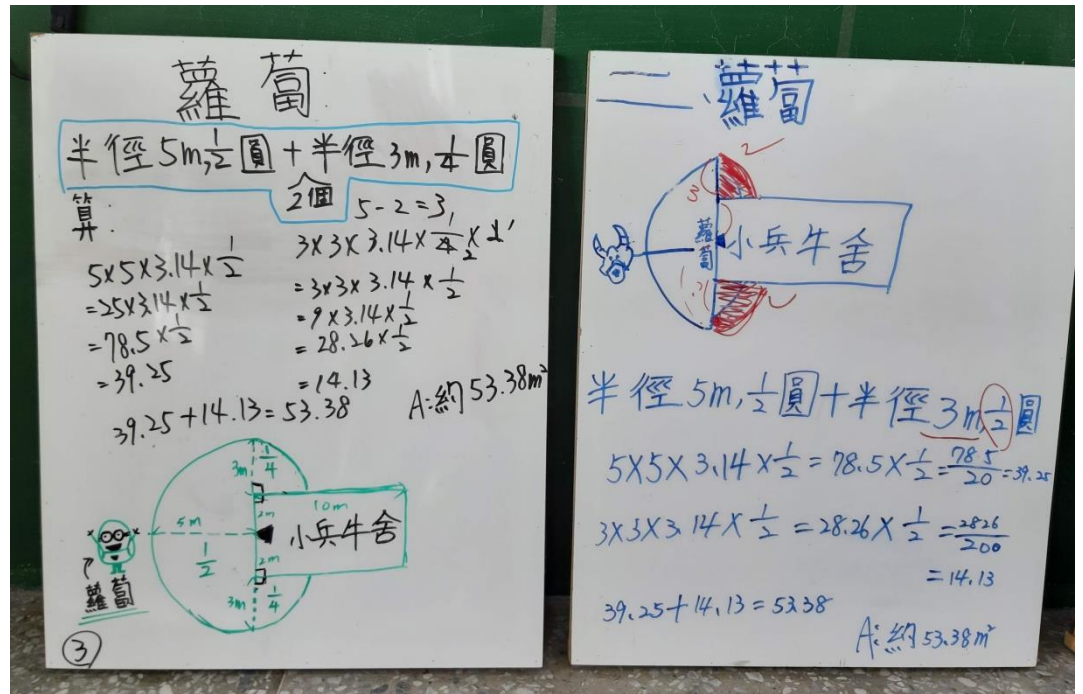 蘿蔔
半徑5m,1/2圓+半徑3m,1/4圓
2個
算:
5-2=3
5×5×3.14×1/2
=25×3.14×1/2
=78.5×1/2
=39.25
3×3×3.14×1/4×2
=3×3×3.14×1/2
=9×3.14×1/2
=28.26×1/2
=14.13
39.25+14.13=53.38
A:約53.38m²
3m
1/4
10m
5m
2m
小兵牛舍
1/2
2m
3m
1/4
蘿蔔
③
二、蘿蔔
2
3
蘿蔔
小兵牛舍
半徑5m,1/2圓+半徑3m,1/2圓
5×5×3.14×1/2=78.5×1/2=785/20=39.25
3×3×3.14×1/2=28.26×1/2=2826/200
=14.13
39.25+14.13=53.38
A:約53.38m²